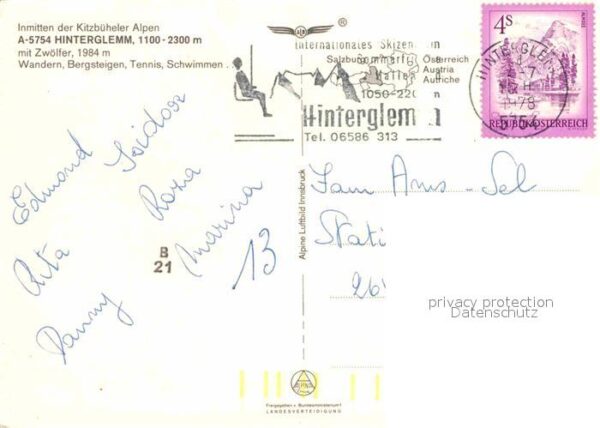 Inmitten der Kitzbüheler Alpen
A-5754 HINTERGLEMM, 1100-2300 m
mit Zwölfer, 1984 m
Wandern, Bergsteigen, Tennis, Schwimmen
®
Internationales Skizen
Salzburg Österreich
Sommerfr
Austria
Hallen
Autriche
1050-22
Hinterglemm
Tel. 06586 313
4S
REPUBLIK ÖSTERREICH
HINTERGLEMM
1978
5754
Edmond Isidoor
Rita Roza
Danny Marina
B
21
13
Alpine Luftbild Innsbruck
Fam Ams - Sel
Stati
26
privacy protection
Datenschutz
Freigegeben v. Bundesministerium f.
LANDESVERTEIDIGUNG